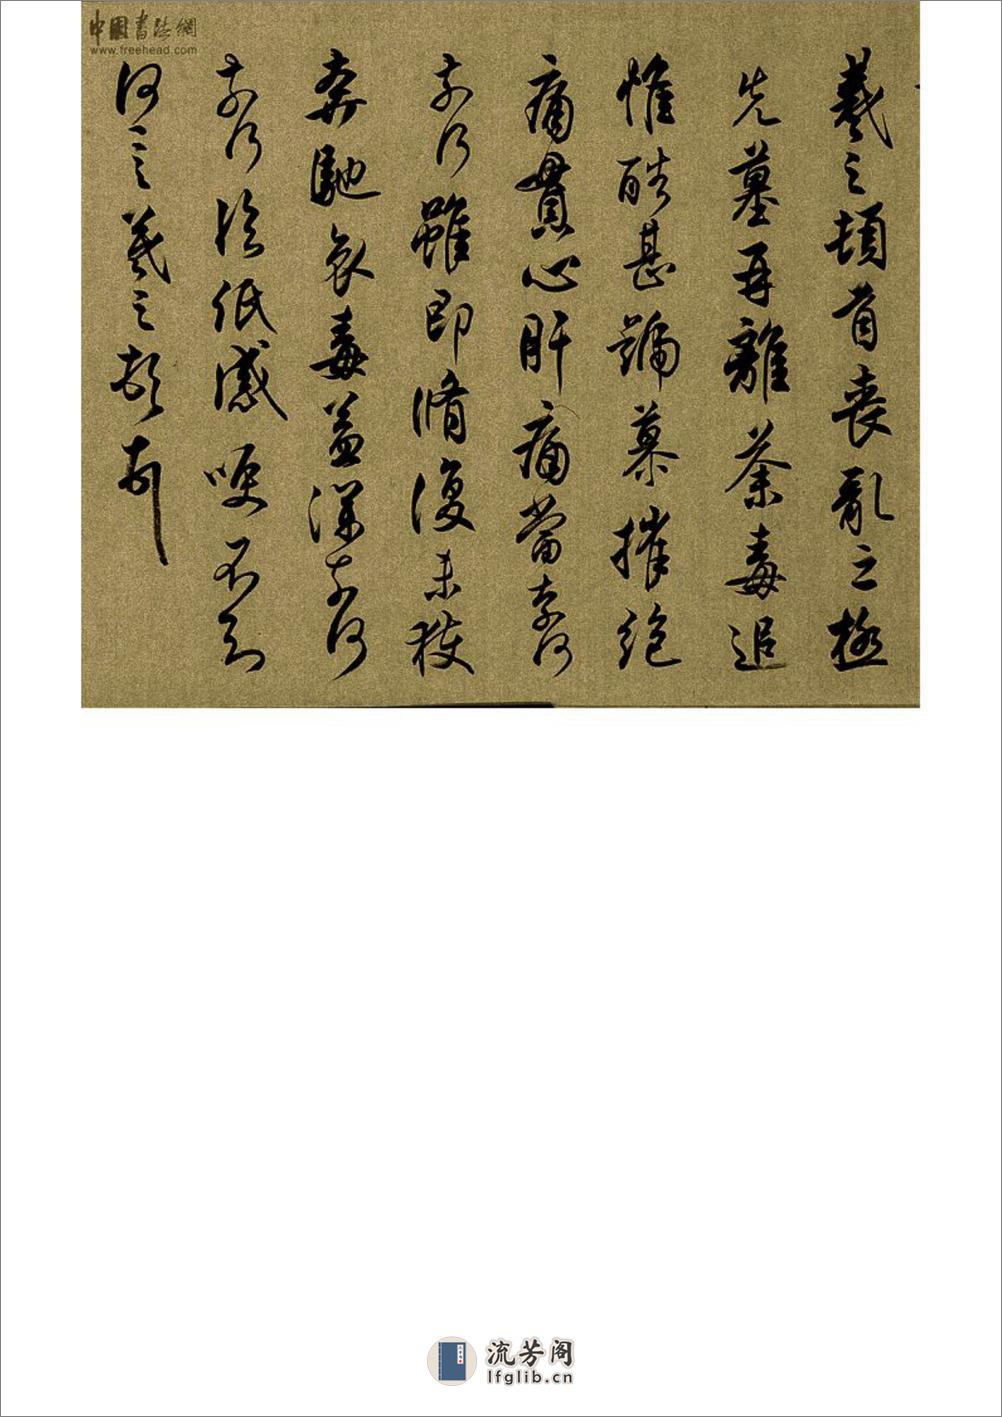 羲之頓首喪亂之極
先墓再離荼毒追
惟酷甚號慕摧絕
痛貫心肝痛當奈何
奈何雖即脩復未獲
奔馳哀毒益深奈何
奈何臨紙感哽不知
何言羲之頓首
中國書法網
www.freehead.com
流芳阁
lfglib.cn